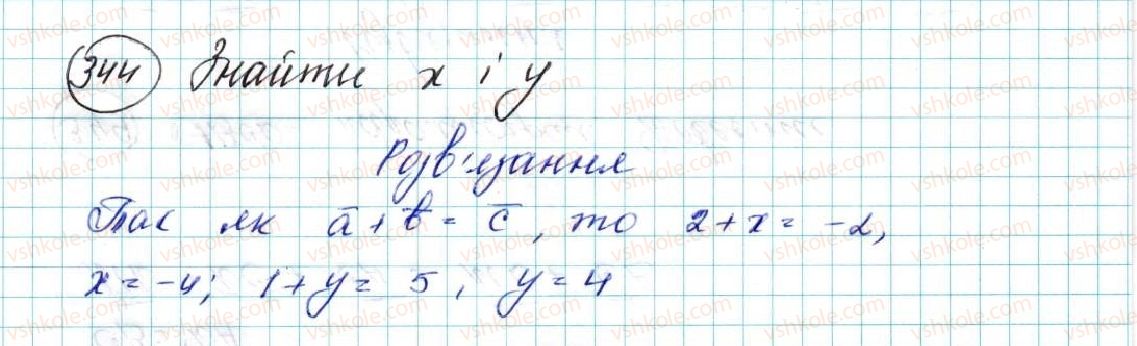 344 Знайти x і y
Розв'язання
Так як a̅ + b̅ = c̅, то 2 + x = -2,
x = -4; 1 + y = 5, y = 4